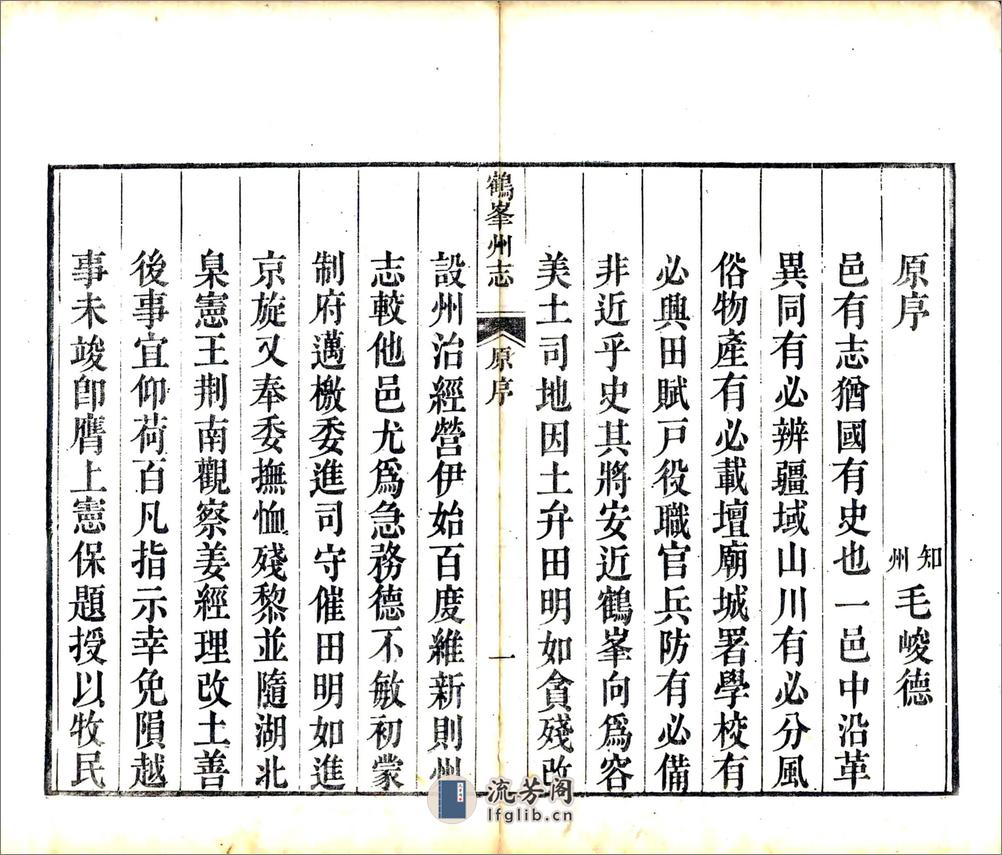 原序
知州 毛峻德
邑有志猶國有史也一邑中沿革
異同有必辨疆域山川有必分風
俗物產有必載壇廟城署學校有
必興田賦戸役職官兵防有必備
非近乎史其將安近鶴峯向爲容
美土司地因土弁田明如貪殘改
鶴峯州志
原序
一
設州治經營伊始百度維新則州
志較他邑尤爲急務德不敏初蒙
制府邁檄委進司守催田明如進
京旋又奉委撫恤殘黎並隨湖北
臬憲王荆南觀察姜經理改土善
後事宜仰荷百凡指示幸免隕越
事未竣卽膺上憲保題授以牧民
流芳阁
lfglib.cn